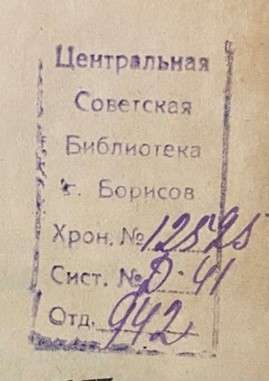 Центральная
Советская
Библиотека
г. Борисов
Хрон. № 12525
Сист. № Д-41
Отд. 942